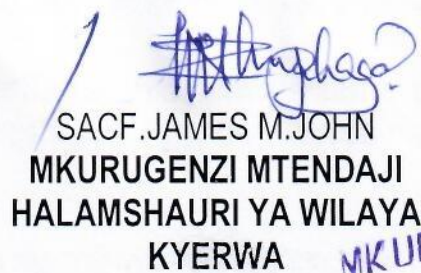 SACF.JAMES M.JOHN
MKURUGENZI MTENDAJI
HALAMSHAURI YA WILAYA
KYERWA